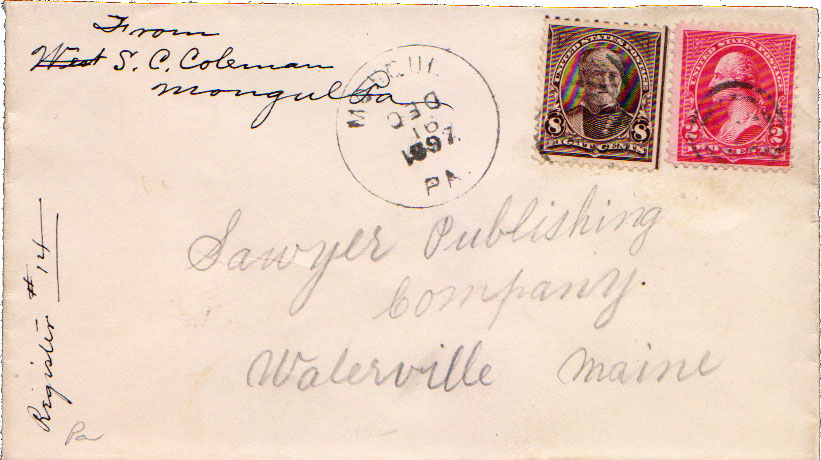 From
West S. C. Coleman
Mongul Pa
MONGUL
DEC
16
1897
PA.
UNITED STATES POSTAGE
8 8
EIGHT CENTS
UNITED STATES POSTAGE
2 2
TWO CENTS
Sawyer Publishing
Company.
Waterville Maine
Register #14
Pa